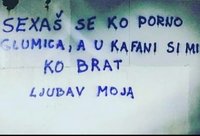 SEXAŠ SE KO PORNO
GLUMICA, A U KAFANI SI MI
KO BRAT
LJUBAV MOJA